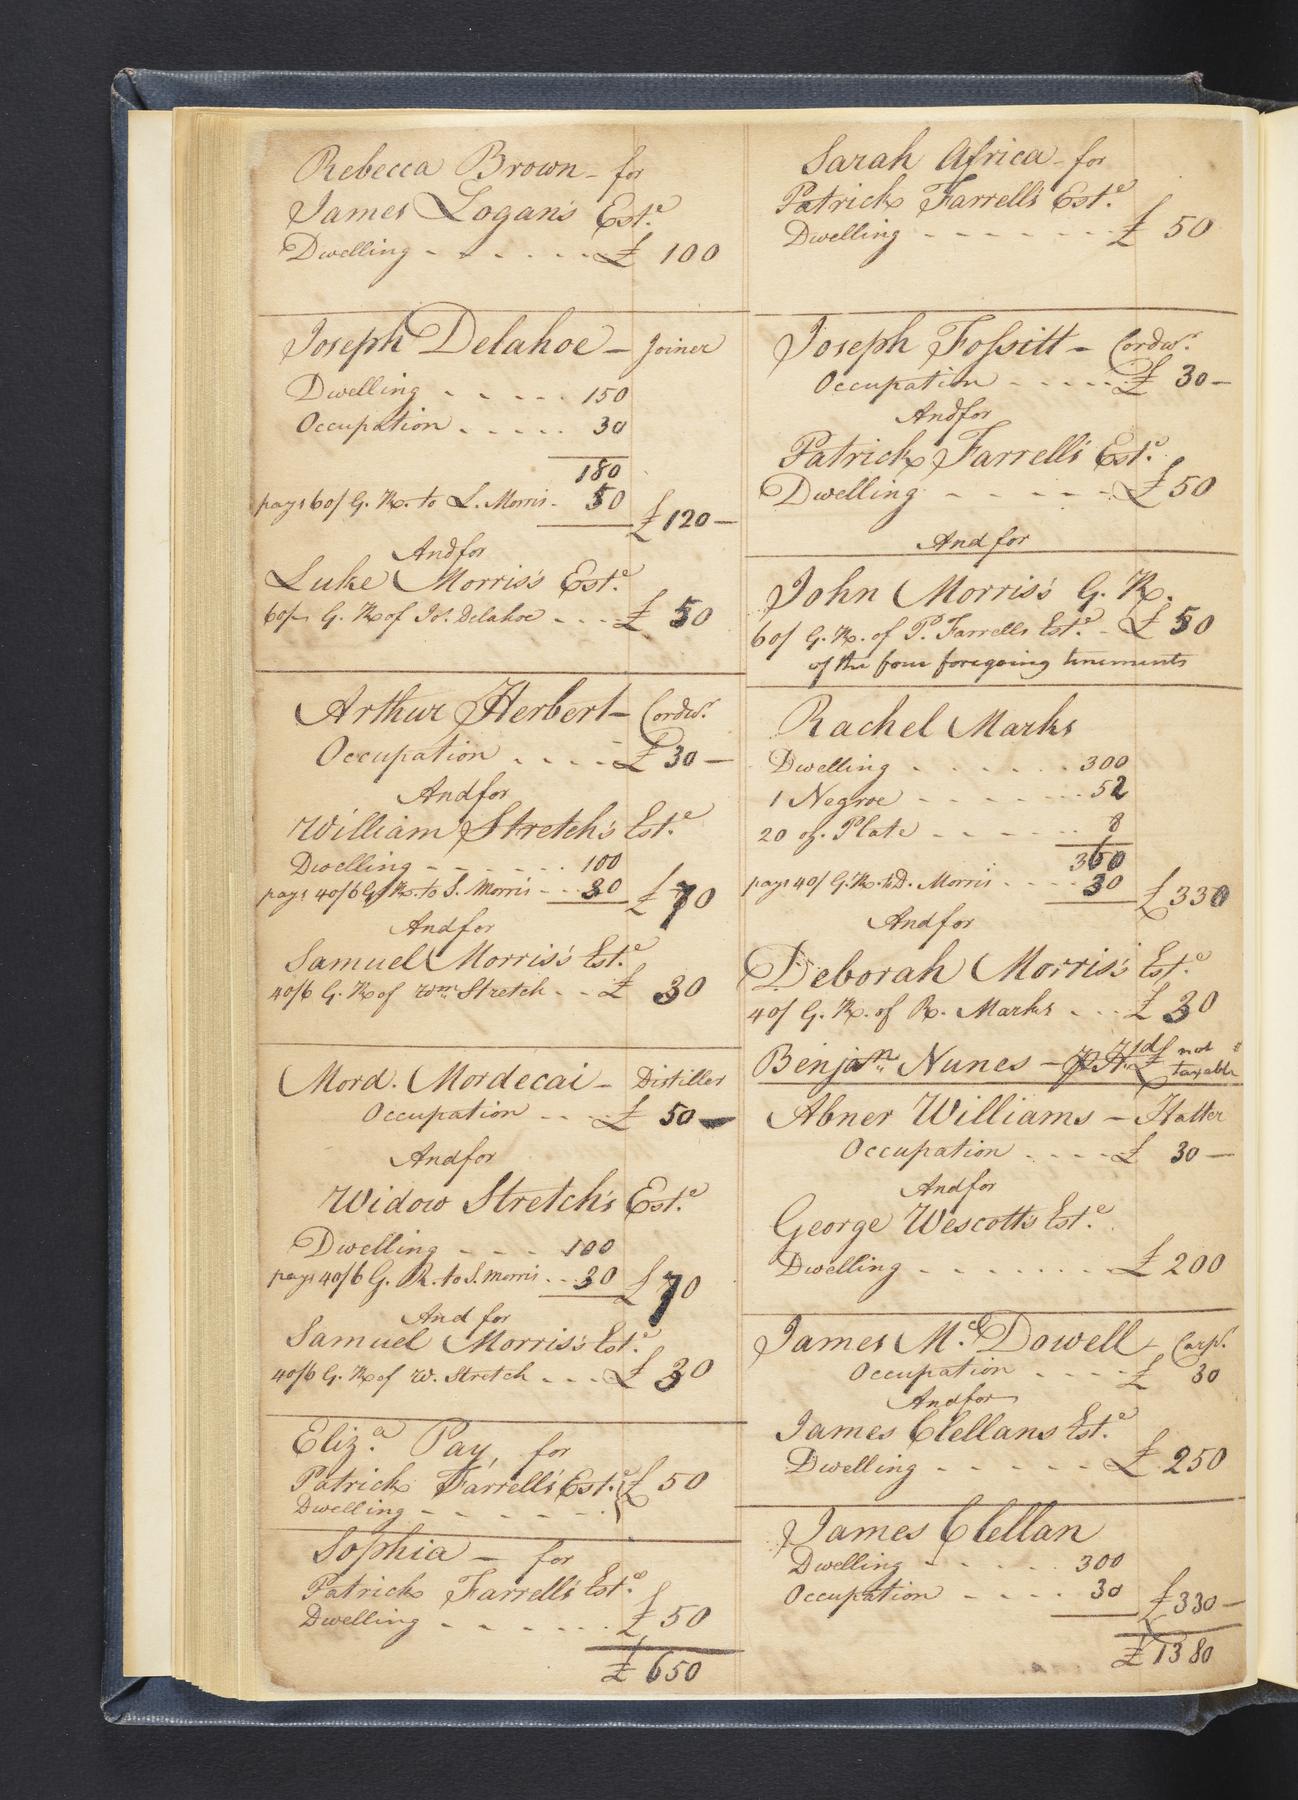 Rebecca Brown - for
James Logan's Est.e
Dwelling - - - - - - £ 100
Joseph Delahoe - Joiner
Dwelling - - - - - 150
Occupation - - - - - 30
180
pays 60/ G. R. to L. Morris - 50
£ 120 -
And for
Luke Morris's Est.e
60/ G. R of Jos. Delahoe - - - £ 50
Arthur Herbert - Cordw.r
Occupation - - - - £ 30 -
And for
William Stretch's Est.e
Dwelling - - - - - - 100
pays 40/6 G. R. to S. Morris - - - 30 £ 70
And for
Samuel Morris's Est.e
40/6 G. R of Wm. Stretch - - £ 30
Mord. Mordecai - Distiller
Occupation - - - - £ 50 -
And for
Widow Stretch's Est.e
Dwelling - - - 100
pays 40/6 G. R. to S. Morris - - - 30 £ 70
And for
Samuel Morris's Est.e
40/6 G. R of W. Stretch - - - £ 30
Eliz.a Pay, for
Patrick Farrell's Est.e £ 50
Dwelling - - - - - -
Sophia - for
Patrick Farrell's Est.e
Dwelling - - - - - - £ 50
£ 650
Sarah Africa - for
Patrick Farrell's Est.e
Dwelling - - - - - - - £ 50
Joseph Fossitt - Cordw.r
Occupation - - - - - £ 30 -
And for
Patrick Farrell's Est.e
Dwelling - - - - - £ 50
And for
John Morris's G. R.
60/ G. R. of P. Farrells Est.e - £ 50
of the four foregoing tenements
Rachel Marks
Dwelling - - - - - - 300
1 Negroe - - - - - - - 52
20 oz. Plate - - - - - - 8
360
pays 40/ G. R. to D. Morris - - - - 30 £ 330
And for
Deborah Morris's Est.e
40/ G. R. of R. Marks - - - £ 30
Benja.n Nunes - £ not taxable
Abner Williams - Hatter
Occupation - - - - £ 30 -
And for
George Wescott's Est.e
Dwelling - - - - - - - £ 200
James Mc.Dowell, Carp.r
Occupation - - - - £ 30
And for
James Clellans Est.e
Dwelling - - - - - £ 250
James Clellan
Dwelling - - - - - 300
Occupation - - - - 30 £ 330 -
£ 1380